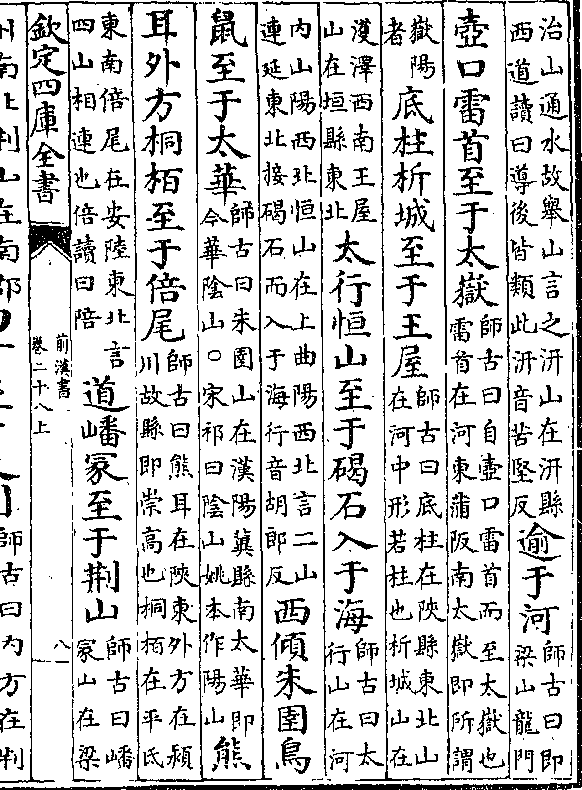 治山通水故舉山言之汧山在汧縣
西道讀曰導後皆類此汧音苦堅反
逾于河
師古曰即
梁山龍門
壺口雷首至于太嶽
師古曰自壺口雷首而至太嶽也
雷首在河東蒲阪南太嶽即所謂
嶽陽
者
底柱析城至于王屋
師古曰底柱在陝縣東北山
在河中形若柱也析城山在
濩澤西南王屋
山在垣縣東北
太行恒山至于碣石入于海
師古曰太
行山在河
内山陽西北恒山在上曲陽西北言二山
連延東北接碣石而入于海行音胡郎反
西傾朱圉鳥
鼠至于太華
師古曰朱圉山在漢陽冀縣南太華即
今華陰山○宋祁曰陰山姚本作陽山
熊
耳外方桐栢至于倍尾
師古曰熊耳在陝東外方在潁
川故縣即崇高也桐栢在平氏
東南倍尾在安陸東北言
四山相連也倍讀曰陪
道嶓冢至于荆山
師古曰嶓
冢山在梁
欽定四庫全書
前漢書
卷二十八上
八